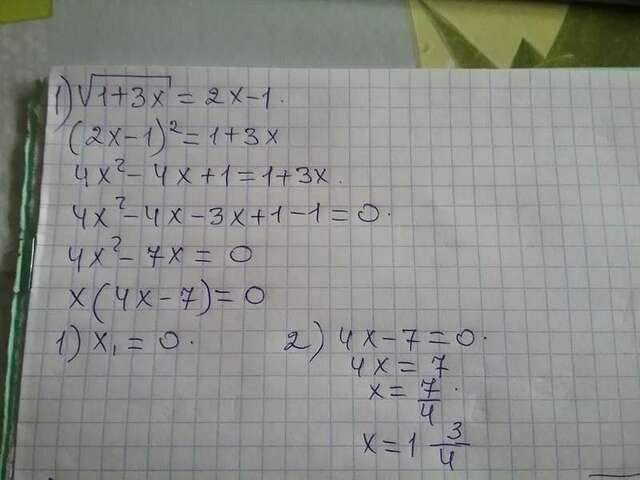 1) √1+3x = 2x-1.
(2x-1)² = 1+3x
4x²-4x+1=1+3x.
4x²-4x-3x+1-1=0.
4x²-7x=0
x(4x-7)=0
1) x₁=0. 2) 4x-7=0.
4x=7
x=7/4.
x=1 3/4